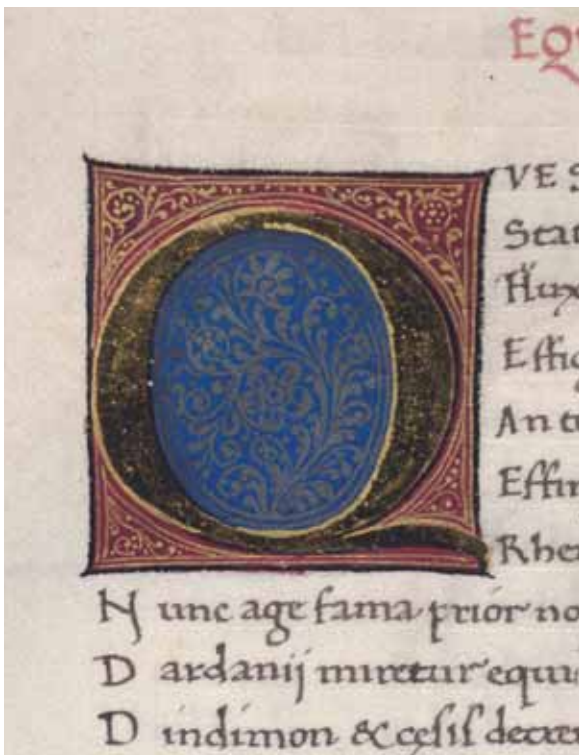 EQ
QVES
Stat
Flux
Effig
Ant
Effin
Rhe
N unc age fama prior no
D ardanij miretur equi
D indimon & cesis decre